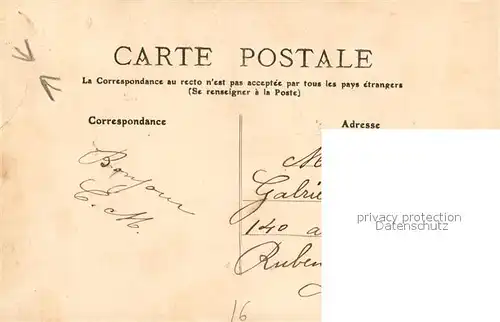 CARTE POSTALE
La Correspondance au recto n'est pas acceptée par tous les pays étrangers
(Se renseigner à la Poste)
Correspondance
Adresse
Bonjour
C. M.
M
Gabrie
140 a
Ruben
privacy protection
Datenschutz
16